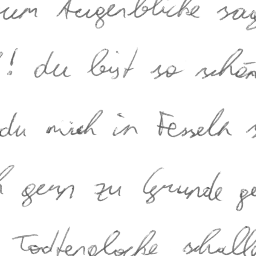 zum Augenblicke sag
! du bist so schön
du mich in Fesseln s
h gern zu Grunde ge
Todtenglocke schalle